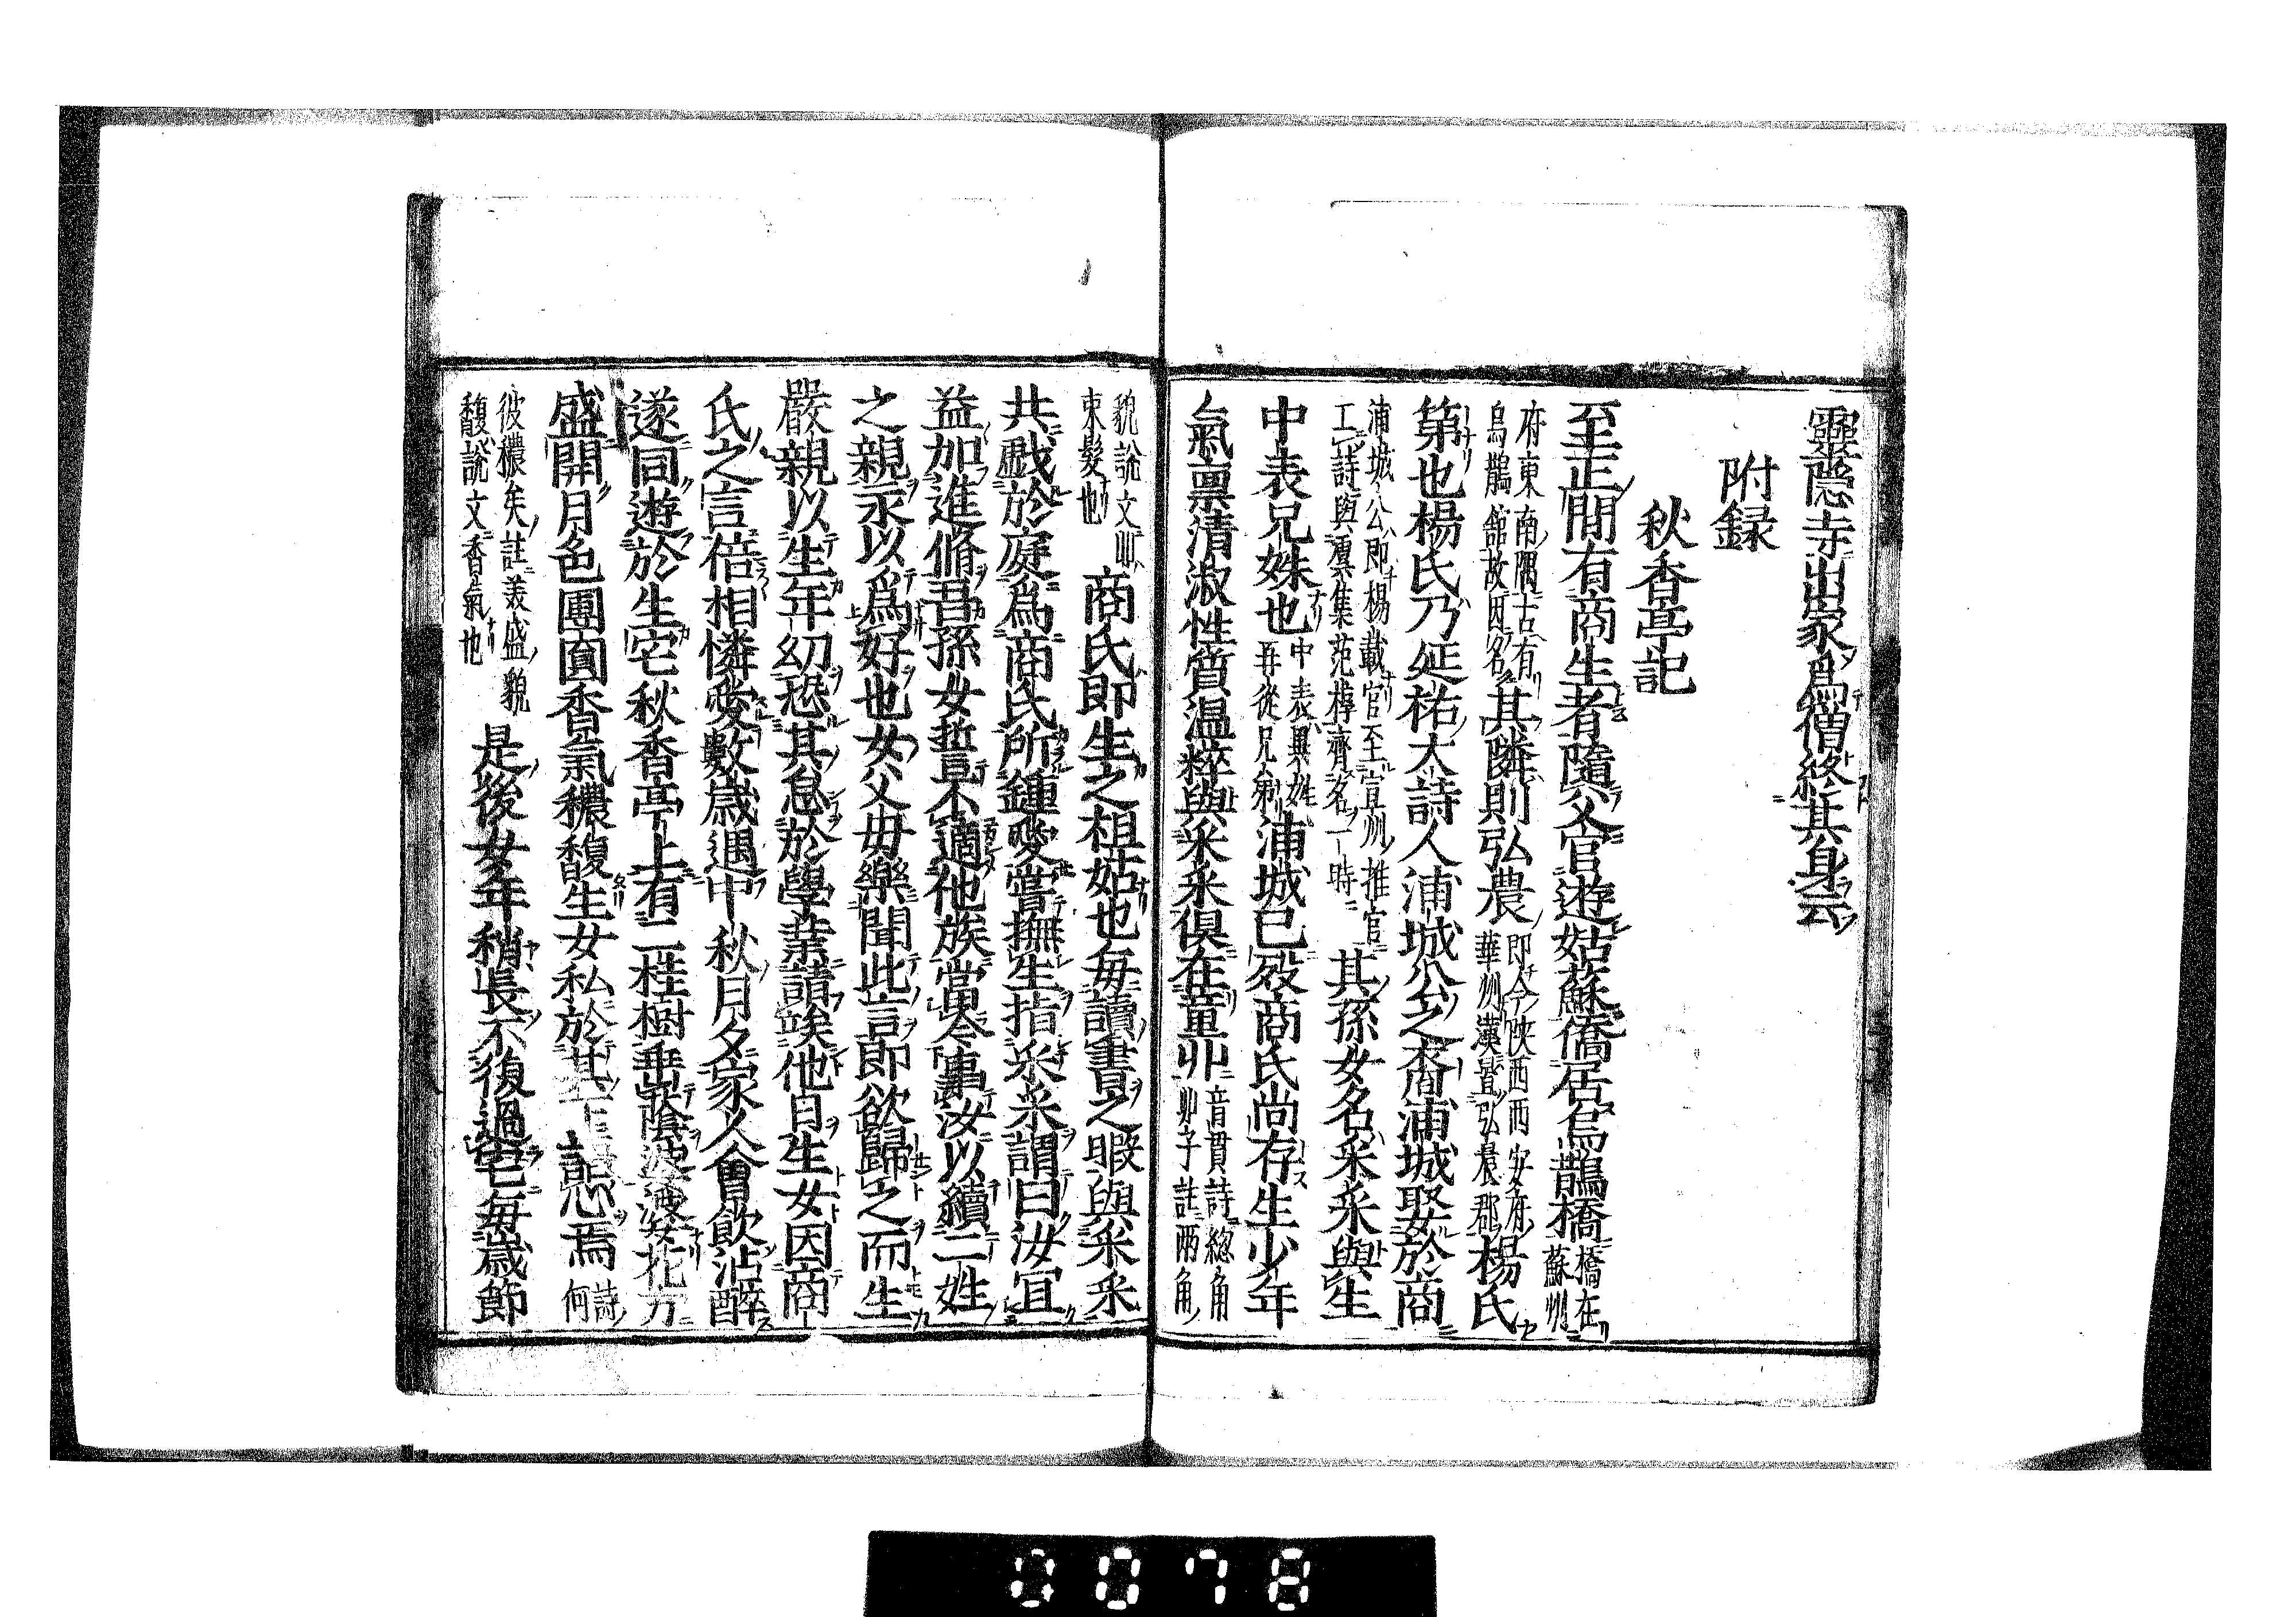 靈隱寺出家爲僧終其身云
附録
秋香亭記
至正間有商生者隨父官遊姑蘇僑居烏鵲橋橋在蘇州
府東南隅古有烏鵲舘故因名其隣則弘農即今陜西西安府華州漢置弘農郡楊氏
第也楊氏乃延祐大詩人浦城公之裔浦城娶於商
浦城公即楊載官至宣州推官工詩與虞集范梈齊名一時其孫女名采采與生
中表兄妹也中表異姓再從兄弟浦城已歿商氏尚存生少年
氣禀清淑性質温粹與采采俱在童丱音貫詩總角丱兮註兩角
貌説文丱束髮也商氏即生之祖姑也毎讀書之暇與采采
共戲於庭爲商氏所鍾愛嘗撫生指采采謂曰汝宜
益加進脩吾孫女誓不適他族當令事汝以續二姓
之親永以爲好也女父毋樂聞此言即欲歸之而生
嚴親以生年幼恐其怠於學業請竢他日生女因商
氏之言倍相憐愛數歳遇中秋月夕家人會飮沾醉
遂同遊於生宅秋香亭上有二桂樹垂蔭婆娑花方
盛開月色團圓香氣穠馥生女私於其下語心焉詩何
彼穠矣註美盛貌馥説文香氣也是後女年稍長不復過宅毎歳節
0078